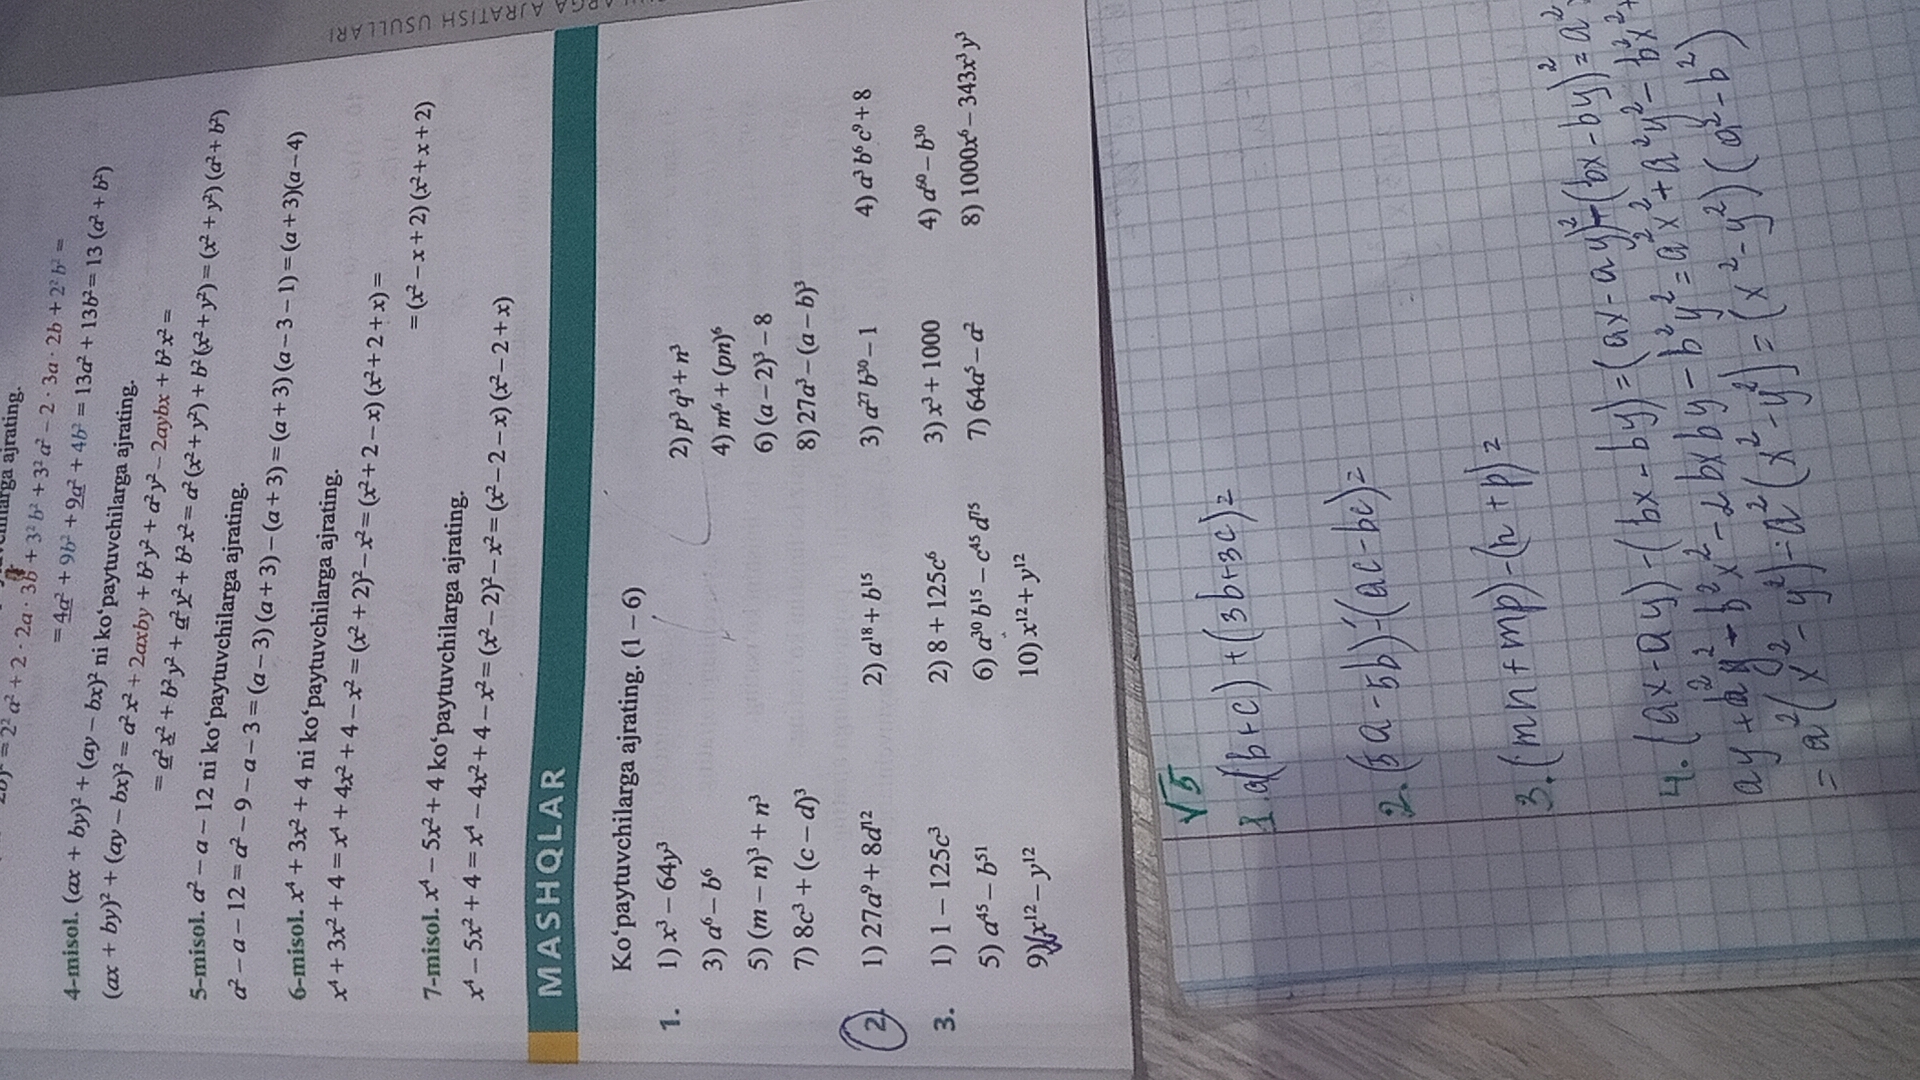 ajrating.
= 2² a² + 2 · 2a · 3b + 3² b² + 3² a² – 2 · 3a · 2b + 2² b² =
= 4a² + 9b² + 9a² + 4b² = 13a² + 13b² = 13 (a² + b²)
4-misol. (ax + by)² + (ay – bx)² ni ko‘paytuvchilarga ajrating.
(ax + by)² + (ay – bx)² = a² x² + 2axby + b² y² + a² y² – 2aybx + b² x² =
= a² x² + b² y² + a² y² + b² x² = a² (x² + y²) + b² (x² + y²) = (x² + y²) (a² + b²)
5-misol. a² – a – 12 ni ko‘paytuvchilarga ajrating.
a² – a – 12 = a² – 9 – a – 3 = (a – 3) (a + 3) – (a + 3) = (a + 3) (a – 3 – 1) = (a + 3)(a – 4)
6-misol. x⁴ + 3x² + 4 ni ko‘paytuvchilarga ajrating.
x⁴ + 3x² + 4 = x⁴ + 4x² + 4 – x² = (x² + 2)² – x² = (x² + 2 – x) (x² + 2 + x) =
= (x² – x + 2) (x² + x + 2)
7-misol. x⁴ – 5x² + 4 ko‘paytuvchilarga ajrating.
x⁴ – 5x² + 4 = x⁴ – 4x² + 4 – x² = (x² – 2)² – x² = (x² – 2 – x) (x² – 2 + x)
AJRATISH USULLARI
MASHQLAR
Ko‘paytuvchilarga ajrating. (1 – 6)
1. 1) x³ – 64y³ 2) p³ q³ + n³
3) a⁶ – b⁶ 4) m⁶ + (pn)⁶
5) (m – n)³ + n³ 6) (a – 2)³ – 8
7) 8c³ + (c – d)³ 8) 27a³ – (a – b)³
2. 1) 27a⁹ + 8d¹² 2) a¹⁸ + b¹⁵ 3) a²⁷ b³⁰ – 1 4) a³ b⁶ c⁹ + 8
3. 1) 1 – 125c³ 2) 8 + 125c⁶ 3) x³ + 1000 4) a⁶⁰ – b³⁰
5) a⁴⁵ – b⁵¹ 6) a³⁰ b¹⁵ – c⁴⁵ d⁷⁵ 7) 64a⁵ – a² 8) 1000x⁶ – 343x³ y³
9) x¹² – y¹² 10) x¹² + y¹²
√5
1. a(b+c) + (3b+3c)=
2. (5a-5b)-(ac-bc)=
3. (mn+mp)-(n+p)=
4. (ax-ay)-(bx-by)=(ax-ay)²-(bx-by)²=a²
ay+a²y²-b²x²-2bxby-b²y²=a²x²+a²y²-b²x²+
=a²(x²-y²)-a²(x²-y²)=(x²-y²)(a²-b²)